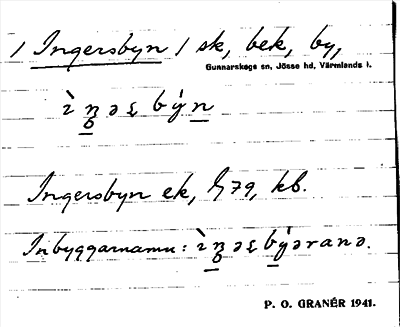 / Ingersbyn / sk, bek, by,
Gunnarskogs sn, Jösse hd, Värmlands l.
Ingersbyn ek, 1/79, kb.
Inbyggarnamn:
P. O. GRANÉR 1941.